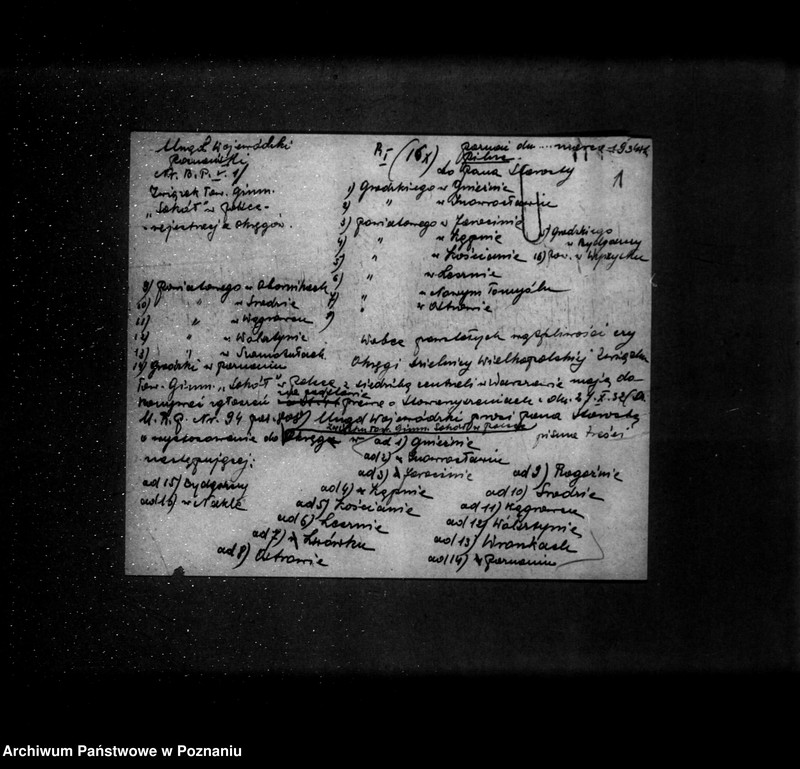 Urząd Wojewódzki
Poznański
Nr. B.P. V. 1/
Związek Tow. Gimn.
„Sokół" w Polsce -
- rejestracja okręgów.
R I (16 x)
Poznań dn. ... marca 1934 r.
Pilne.
do Pana Starosty
1
1) Grodzkiego w Gnieźnie
2) " w Inowrocławiu
3) powiatowego w Jarocinie
4) " w Kępnie
5) " w Kościanie
6) " w Lesznie
7) " w Nowym Tomyślu
8) " w Ostrowie
15) Grodzkiego
w Bydgoszczy
16) pow. w Wyrzysku
9) powiatowego w Obornikach
10) " w Środzie
11) " w Wągrowcu
12) " w Wolsztynie
13) " w Szamotułach
14) Grodzki w Poznaniu
Wobec powstałych wątpliwości czy
Okręgi Dzielnicy Wielkopolskiej Związku
Tow. Gimn. „Sokół" w Polsce z siedzibą centrali w Warszawie mają do-
konywać zgłoszeń na podstawie prawa o Stowarzyszeniach z dn. 27.X.32 /Dz.
U. R.P. Nr. 94 poz. 808/ Urząd Wojewódzki prosi pana Starostę
Związku Tow. Gimn. Sokół w Polsce
o wystosowanie do Okręgu w ad 1) Gnieźnie pisma treści
następującej:
ad 2) w Inowrocławiu
ad 3) Jarocinie
ad 4) w Kępnie
ad 5) Kościanie
ad 6) Lesznie
ad 7) Lwówku
ad 8) Ostrowie
ad 9) Rogoźnie
ad 10) Środzie
ad 11) Wągrowcu
ad 12) Wolsztynie
ad 13) Wronkach
ad 14) Poznaniu
ad 15) Bydgoszczy
ad 16) w Nakle
Archiwum Państwowe w Poznaniu